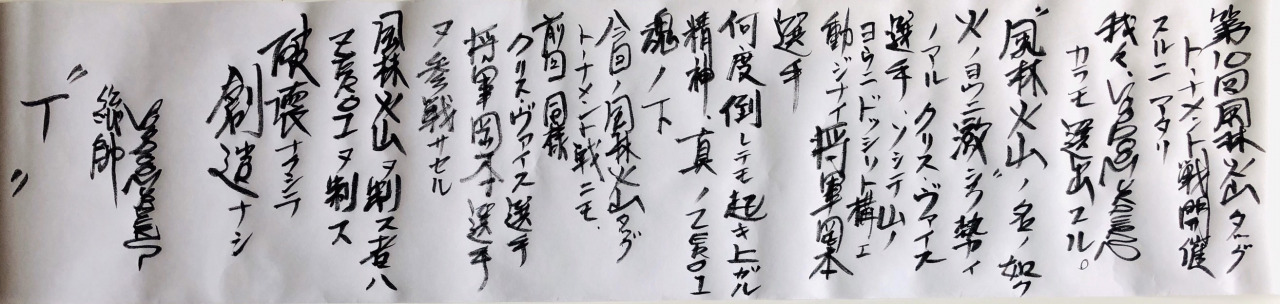 第10回風林火山タッグ
トーナメント戦開催
スルニアタリ
我々
カラモ選出スル。
風林火山ノ名ノ如ク
火ノヨウニ激シク勢イ
ノアルクリスヴァイス
選手、ソシテ山ノ
ヨウニドッシリト構エ
動ジナイ将軍岡本
選手
何度倒レテモ起キ上ガル
精神、真ノZERO1
魂ノ下
今回ノ風林火山タッグ
トーナメント戦ニモ
前回同様
クリスヴァイス選手
将軍岡本選手
ヲ参戦サセル
風林火山ヲ制ス者ハ
ZERO1ヲ制ス
破壊ナクシテ
創造ナシ
総帥
"T"